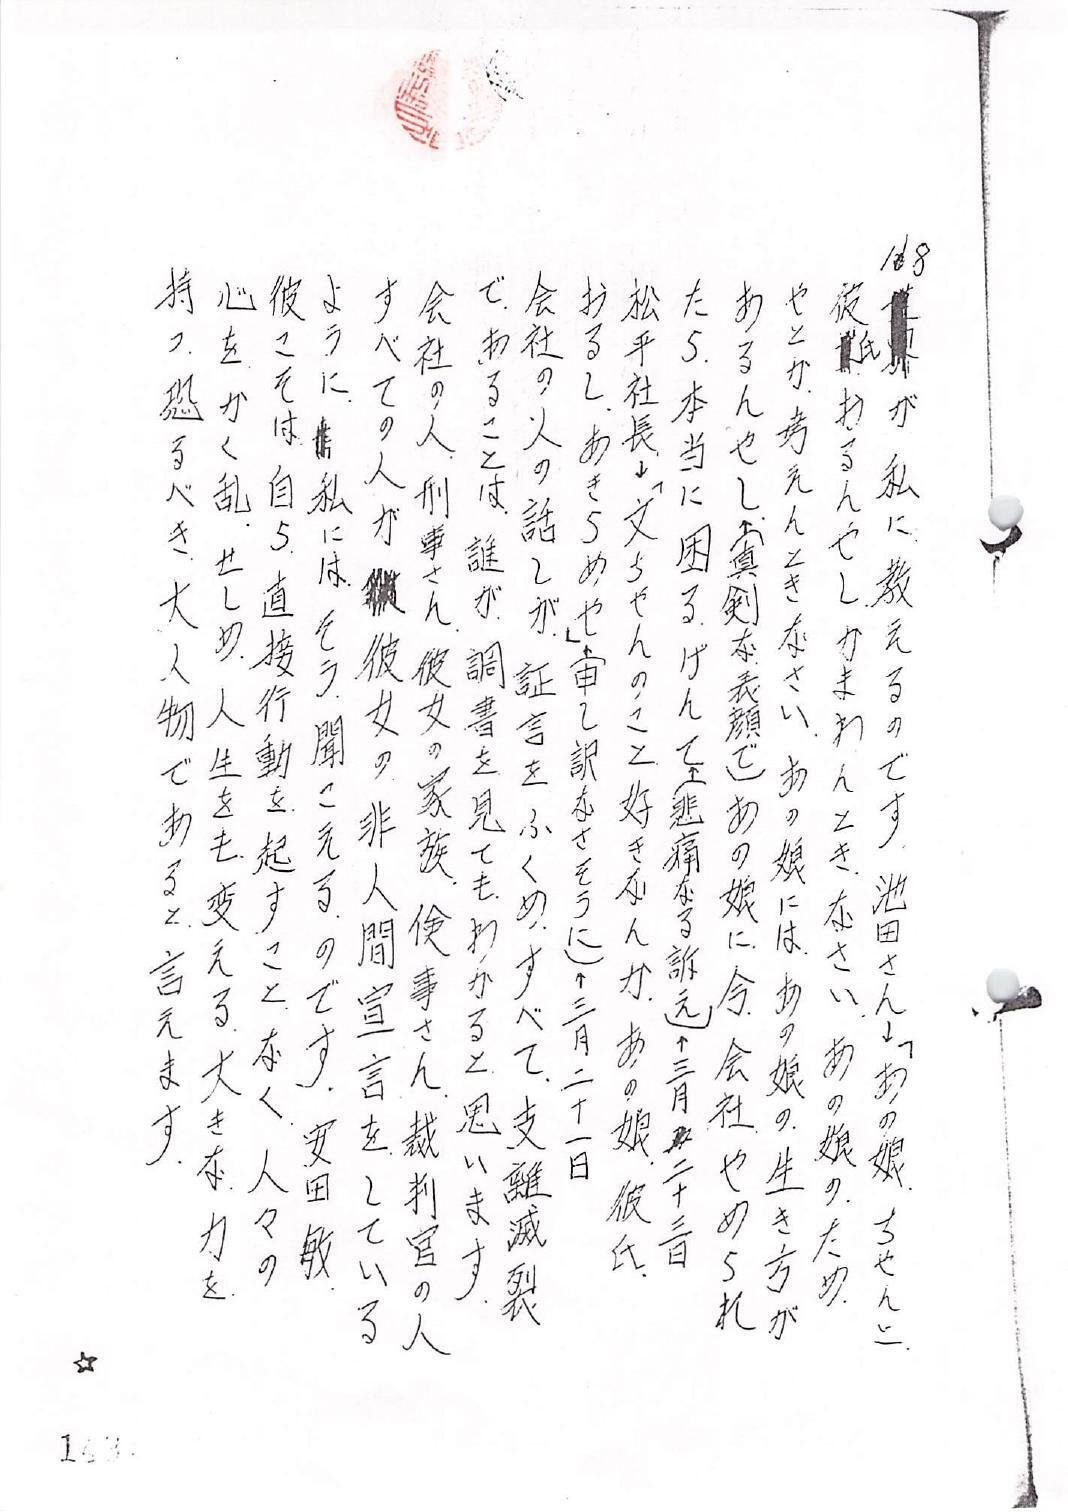 168
が 私に 教えるのです. 池田さん→「あの娘. ちゃんと
彼氏 おるんやし かまわんとき なさい. あの娘の. ため.
やとか. 考えんときなさい. あの娘には. あの娘の. 生き方が
あるんやし↑(真剣な表顔で) あの娘に. 今. 会社 やめられ
たら. 本当に 困るげんて↑悲痛なる訴え)↑三月二十三日
松平社長→「文ちゃんのこと 好きなんか. あの娘. 彼氏.
おるし. あきらめや」↑(申し訳なさそうに)↑三月二十一日
会社の人の話しが. 証言をふくめ. すべて. 支離滅裂
で. あることは. 誰が 調書を見ても わかると 思います.
会社の人. 刑事さん. 彼女の家族. 倹事さん. 裁判官の人
すべての人が 彼女の 非人間宣言をしている
ように. 私には. そう. 聞こえる. のです. 安田 敏.
彼こそは. 自ら. 直接行動を. 起すこと. なく. 人々の
心を かく乱. せしめ. 人生をも. 変える. 大きな. 力を.
持つ. 恐るべき. 大人物であると. 言えます.
☆